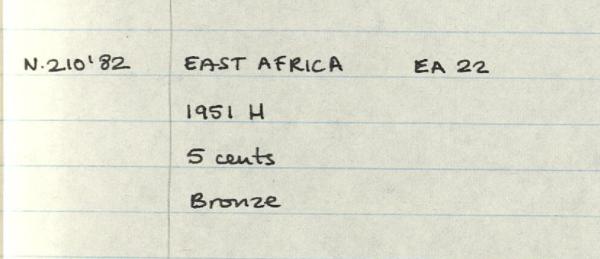 N.210'82 EAST AFRICA EA 22
1951 H
5 cents
Bronze